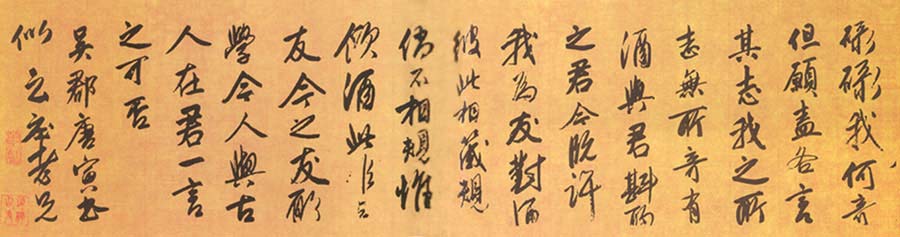 碌碌我何奇
但願盍各言
其志我之所
志無所奇有
酒與君斟酌
之君今既許
我為友對酒
彼此相箴規
倘不相規惟
酒此云
友今之友
學今人與古
人在君一言
之可否
吳郡唐寅書
似云莊老兄